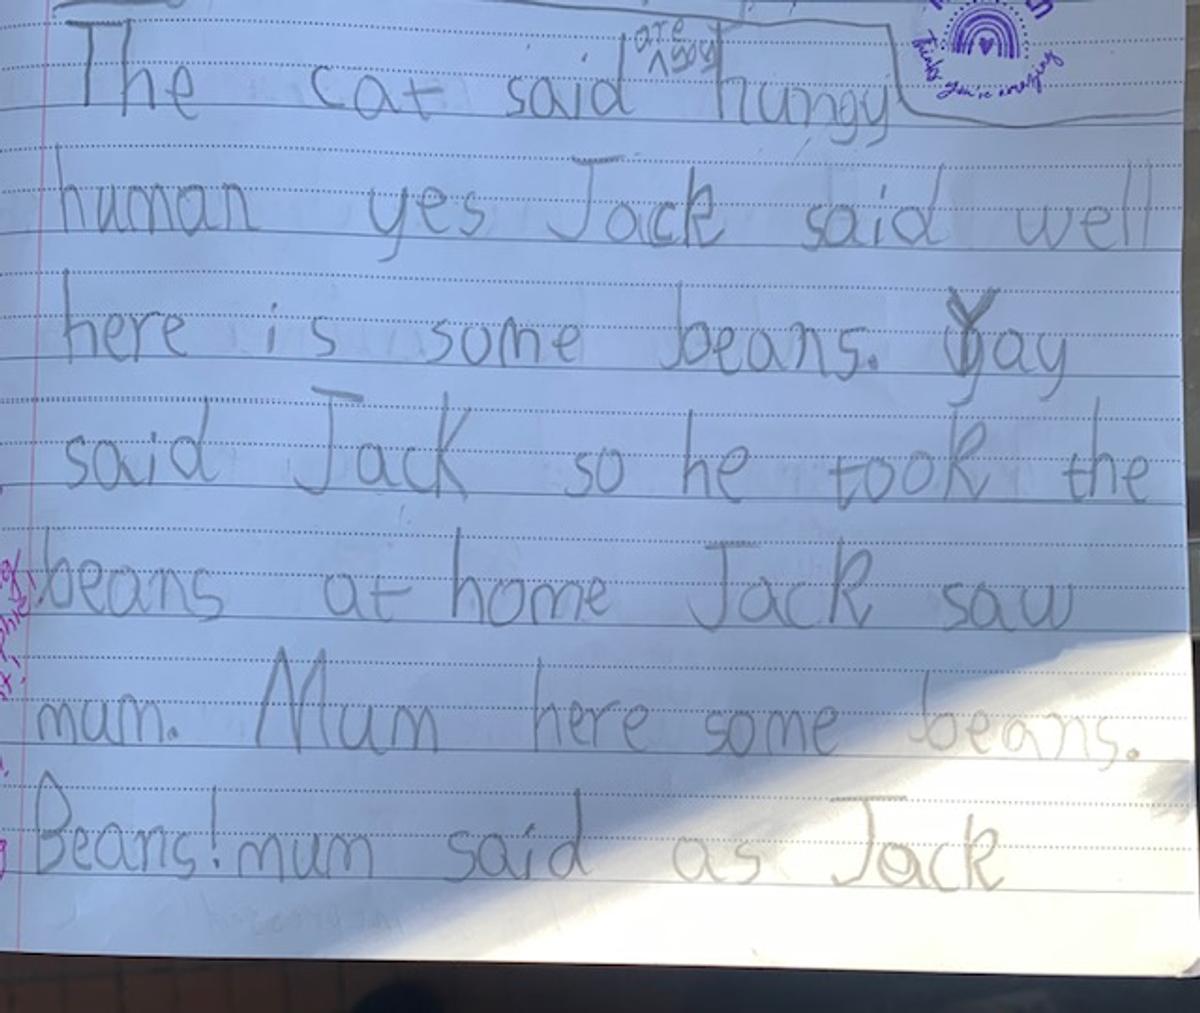 are
The cat said ^you hungy
human yes Jack said well
here is some beans. Yay
said Jack so he took the
beans at home Jack saw
mum. Mum here some beans.
Beans! mum said as Jack
Thinks you're amazing